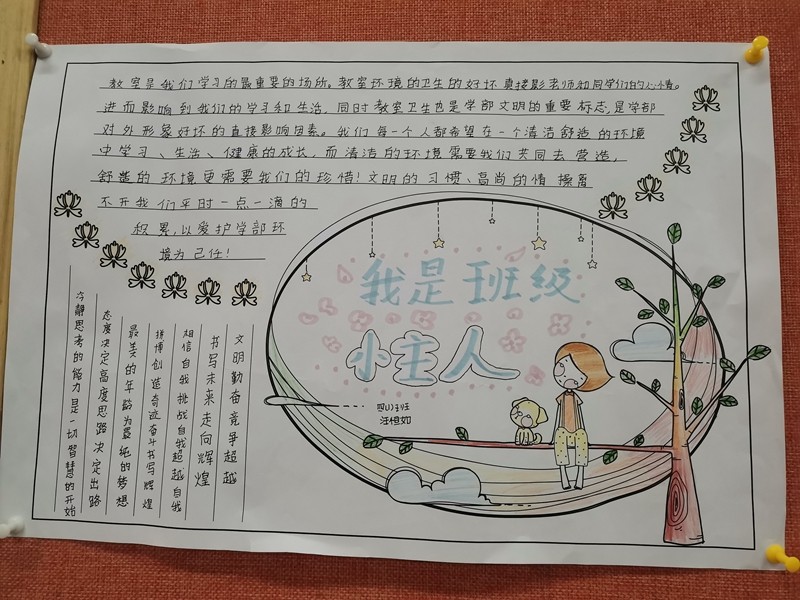 教室是我们学习的最重要的场所。教室环境的卫生的好坏真接影老师和同学们的心情。
进而影响到我们的学习和生活，同时教室卫生也是学部文明的重要标志，是学部
对外形象好坏的直接影响因素。我们每一个人都希望在一个清洁舒适的环境
中学习、生活、健康的成长，而清洁的环境需要我们共同去营造，
舒适的环境更需要我们的珍惜！文明的习惯、高尚的情操离
不开我们平时一点一滴的
积累，以爱护学部环
境为己任！
我是班级
小主人
四(1)班
汪恺如
文明勤奋竞争超越
书写未来走向辉煌
相信自我挑战自我超越自我
拼博创造奇迹奋斗书写辉煌
最美的年龄为最纯的梦想
态度决定高度思路决定出路
冷静思考的能力是一切智慧的开始